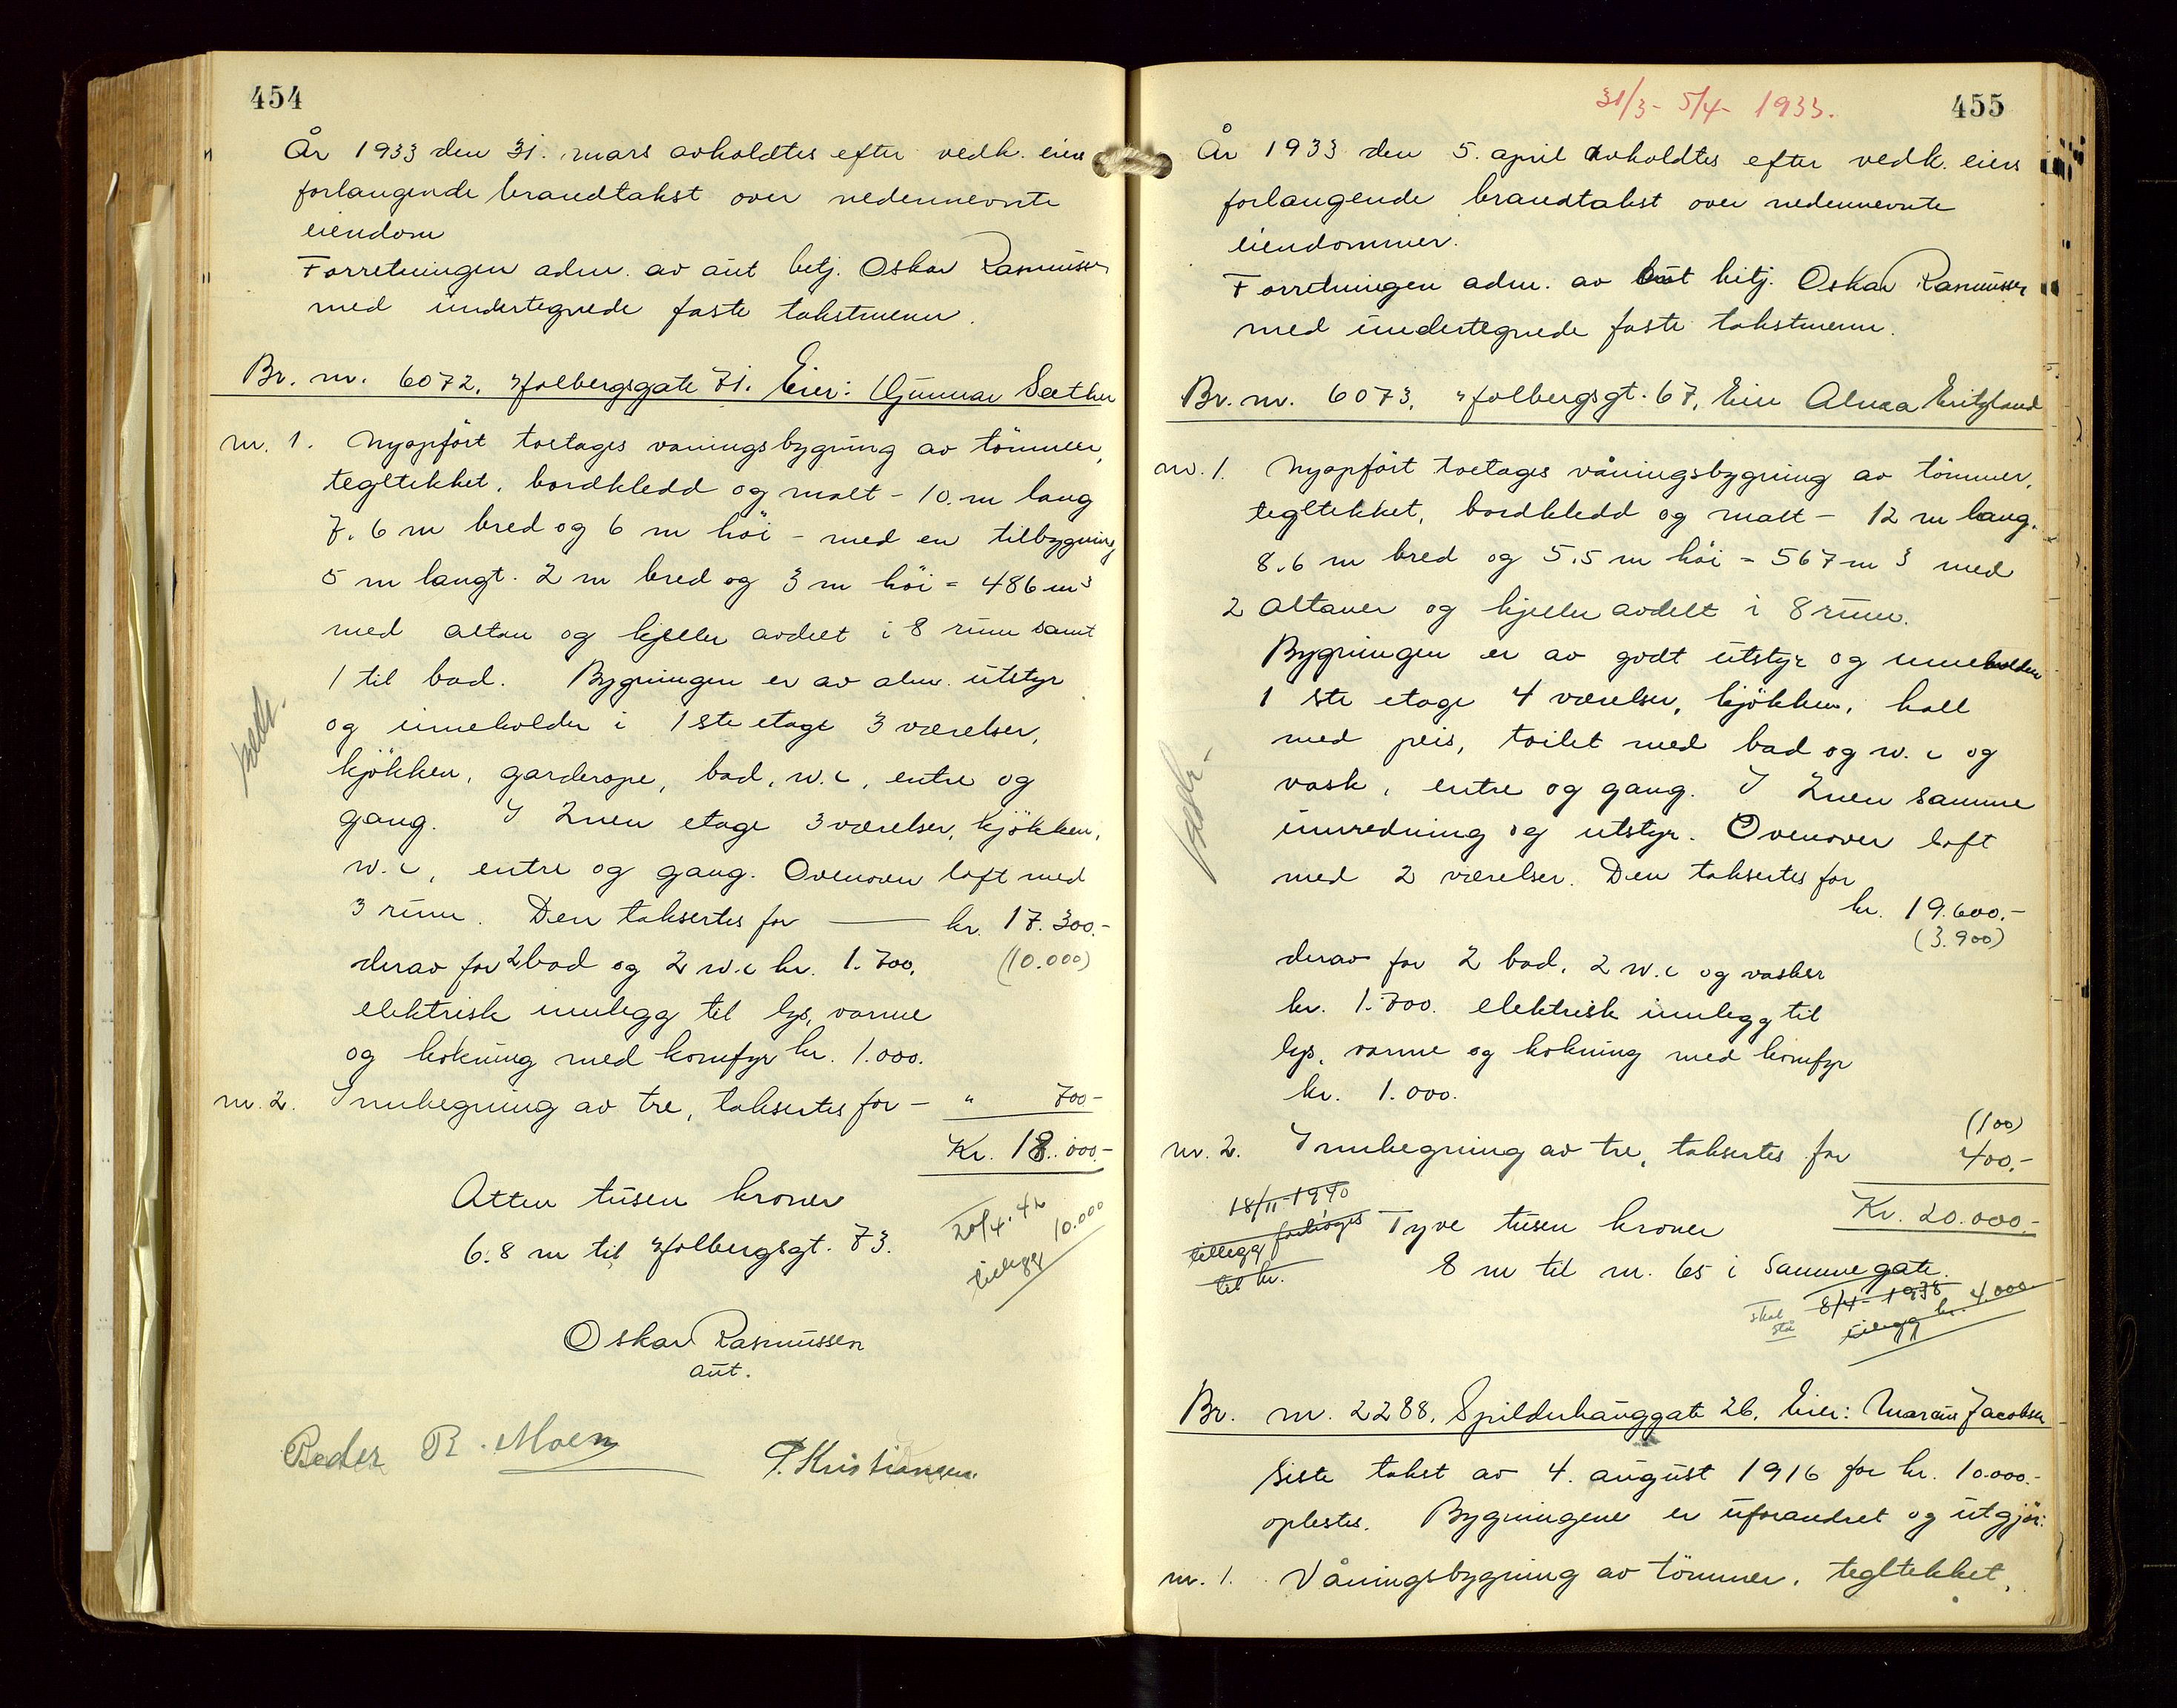 454
År 1933 den 31. mars avholdtes efter vedk. eiers
forlangende brandtakst over nedennevnte
eiendom
Forretningen adm. av aut betj. Oskar Rasmussen
med undertegnede faste takstmenn.
Br. nr. 6072. Holbergsgate 71. Eier: Gunnar Sæther
nr. 1. Nyopført toetages våningsbygning av tømmer,
tegltekket, bordkledd og malt - 10 m lang
7.6 m bred og 6 m høi - med en tilbygning
5 m langt. 2 m bred og 3 m høi = 486 m³
med altan og kjeller avdelt i 8 rum samt
1 til bad. Bygningen er av alm. utstyr
og inneholder i 1ste etage 3 værelser,
kjøkken, garderope, bad, w.c, entre og
gang. I 2nen etage 3 værelser, kjøkken,
w.c, entre og gang. Ovenover loft med
3 rum. Den taksertes for — kr. 17.300.-
derav for 2 bad og 2 w.c kr. 1.700. (10.000)
elektrisk innlegg til lys, varme
og kokning med komfyr kr. 1.000.
nr. 2. Innhegning av tre, taksertes for - " 700.-
Kr. 18.000.-
Atten tusen kroner
6.8 m til Holbergsgt. 73.
20/4.42
tillegg 10.000
Oskar Rasmussen
aut.
Peder R. Moen
P. Kristiansen
31/3 - 5/4 - 1933.
455
År 1933 den 5. april avholdtes efter vedk. eiers
forlangende brandtakst over nedennevnte
eiendommer.
Forretningen adm. av aut betj. Oskar Rasmussen
med undertegnede faste takstmenn.
Br. nr. 6073. Holbergsgt. 67, Eier Alma
nr. 1. Nyopført toetages våningsbygning av tømmer,
tegltekket, bordkledd og malt - 12 m lang.
8.6 m bred og 5.5 m høi = 567 m³ med
2 altaner og kjeller avdelt i 8 rum.
Bygningen er av godt utstyr og inneholder
1 ste etage 4 værelser, kjøkken, hall
med peis, toilet med bad og w.c og
vask, entre og gang. I 2nen samme
innredning og utstyr. Ovenover loft
med 2 værelser. Den taksertes for
kr. 19.600.-
(3.900)
derav for 2 bad, 2 w.c og vasker
kr. 1.700. elektrisk innlegg til
lys, varme og kokning med komfyr
kr. 1.000.
(100)
nr. 2. Innhegning av tre, taksertes for 400.-
Kr. 20.000.-
18/11-1940
tillegg forhøiges
til kr.
Tyve tusen kroner
8 m til nr. 65 i Samme gate.
8/4-1938
tillegg kr. 4.000
skal
stå
Br. nr. 2288. Spilderhauggate 26. Eier: Marcus Jacobsen
Siste takst av 4. august 1916 for kr. 10.000.-
oplestes. Bygningene er uforandret og utgjør:
nr. 1. Våningsbygning av tømmer, tegltekket,